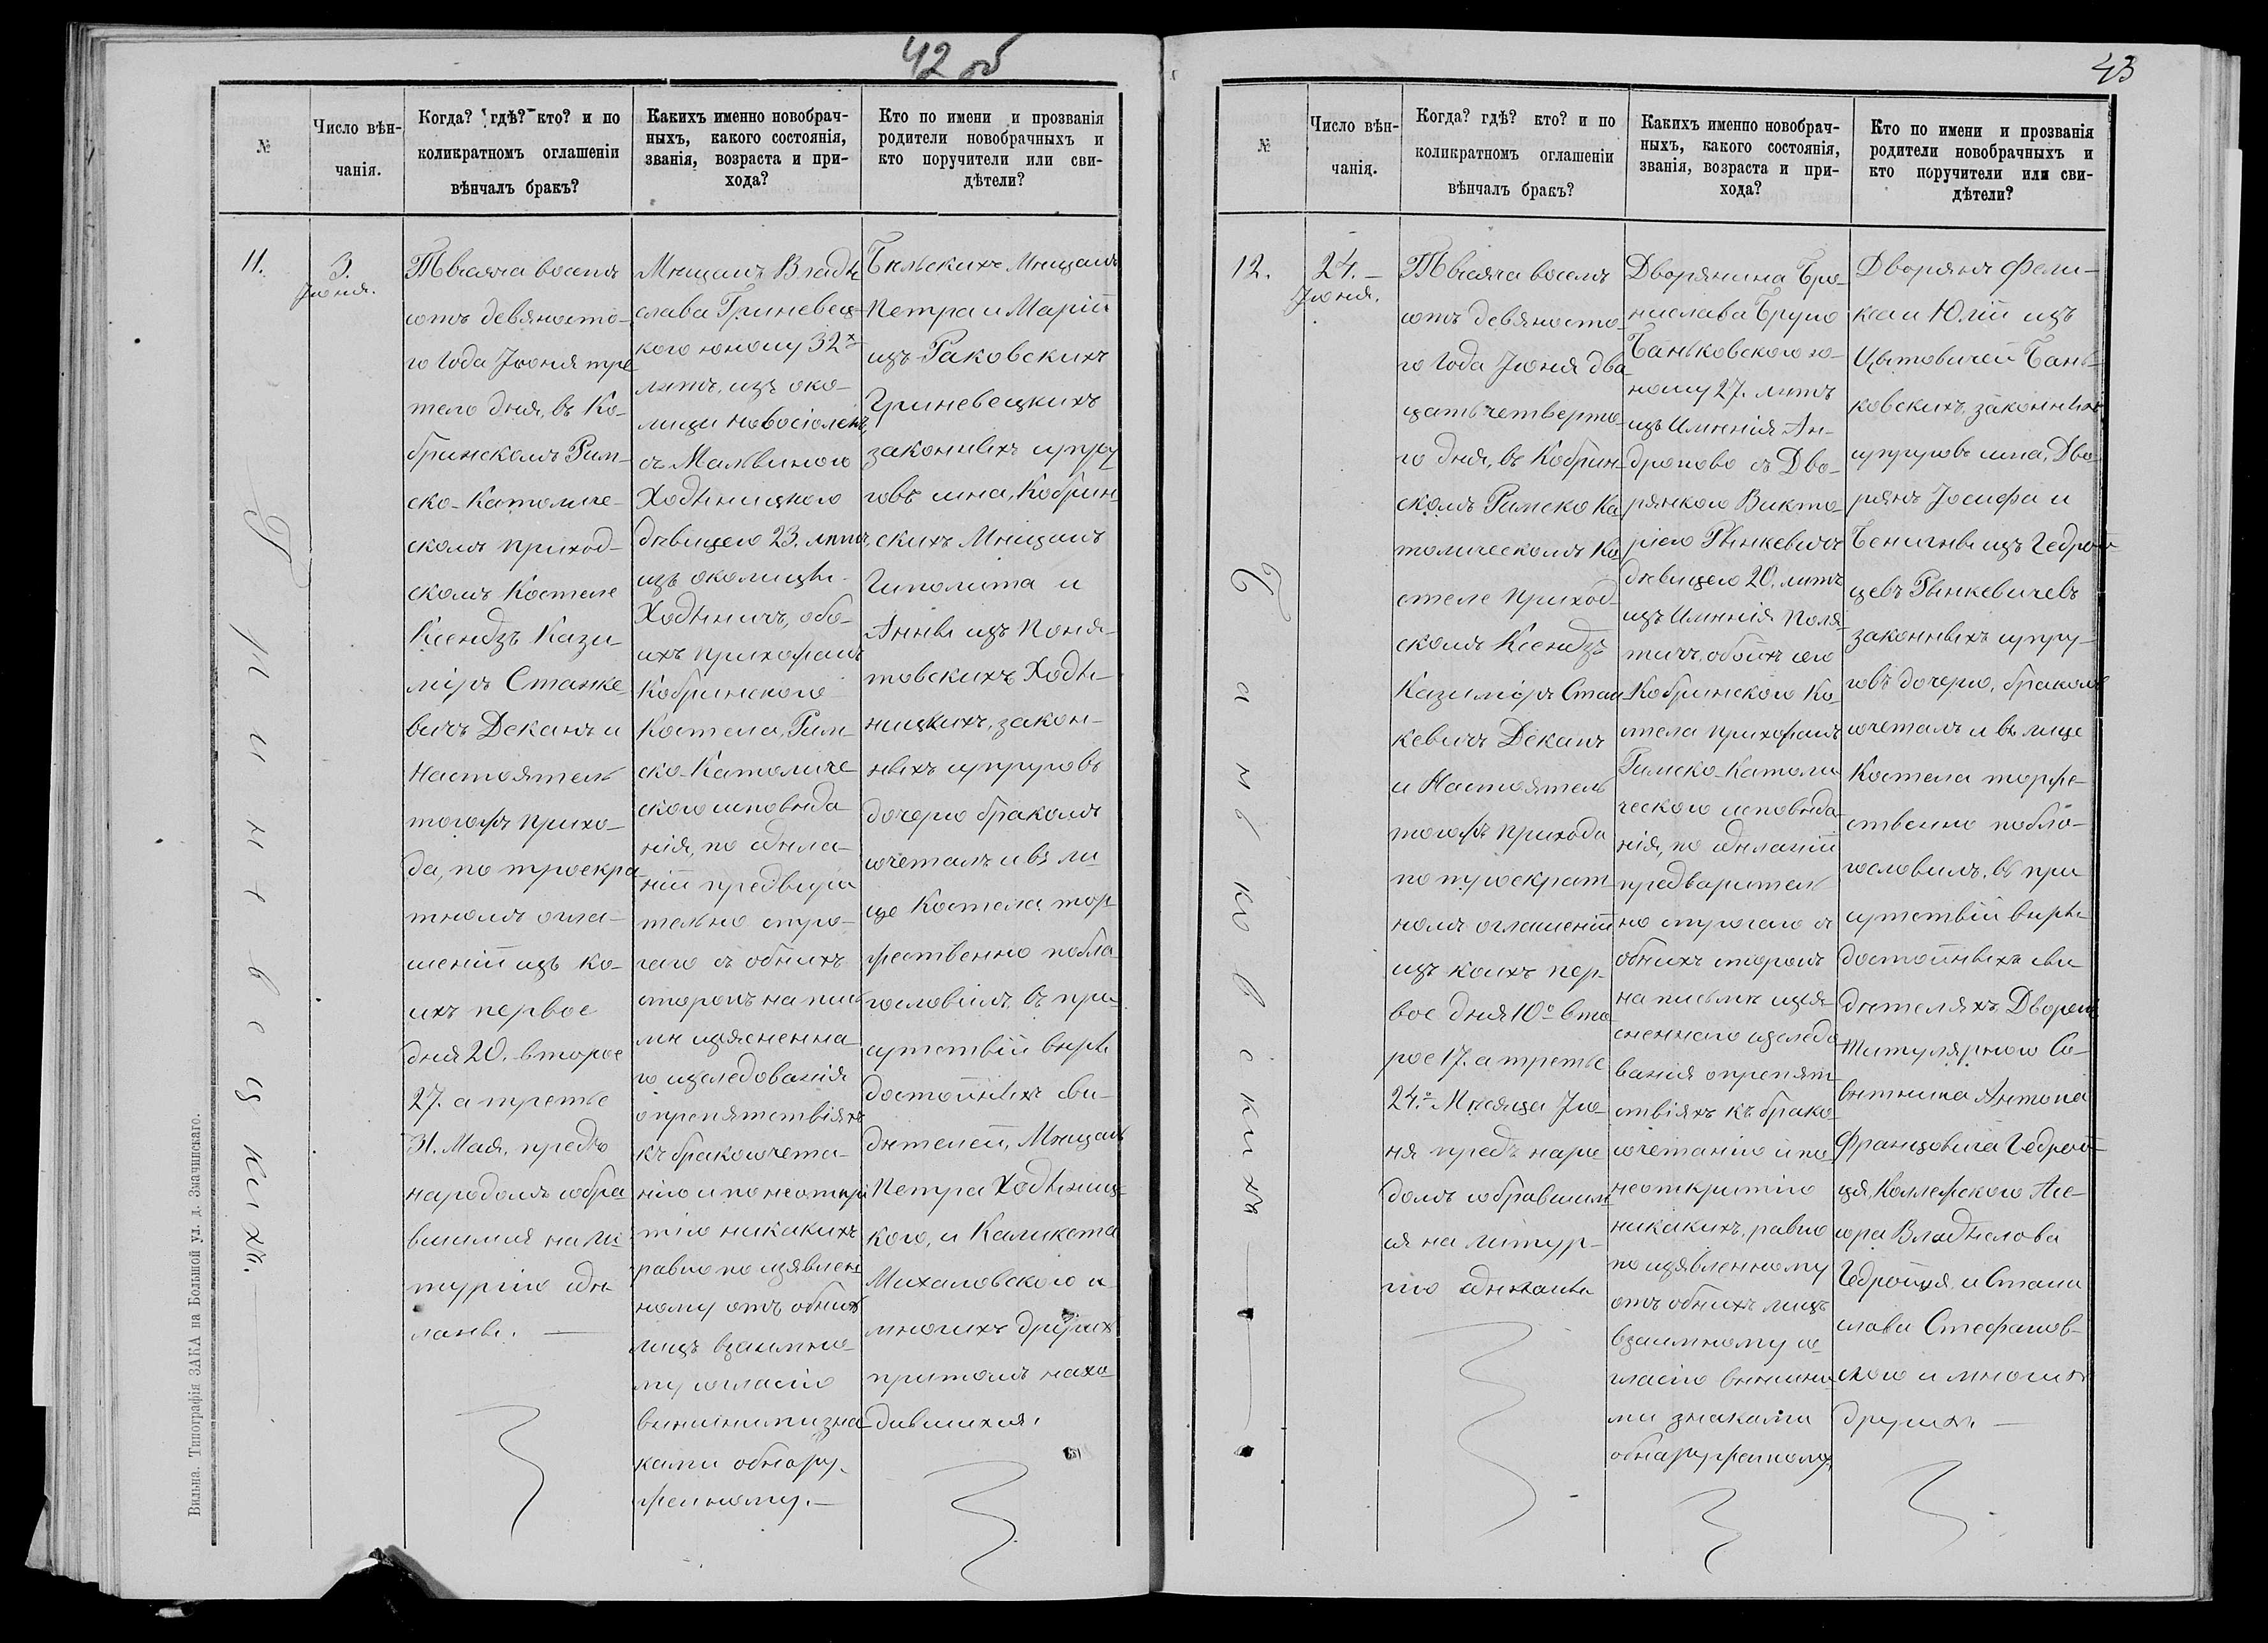 42 об
№
Число вѣн-
чанія.
Когда? гдѣ? кто? и по
коликратномъ оглашеніи
вѣнчалъ бракъ?
Какихъ именно новобрач-
ныхъ, какого состоянія,
званія, возраста и при-
хода?
Кто по имени и прозванія
родители новобрачныхъ и
кто поручители или сви-
дѣтели?
11.
Гриневецкихъ.
3.
Іюня.
Тысяча восемъ
сотъ девяносто-
го года Іюня тре
тего дня, въ Ко-
бринскомъ Рим-
ско-Католиче-
скомъ приход-
скомъ Костеле
Ксендзъ Кази-
міръ Станке
вичъ Деканъ и
Настоятель
тогожъ прихо-
да, по троекра
тномъ огла-
шеніи изъ ко-
ихъ первое
дня 20. второе
27. а третье
31. Мая, предъ
народомъ собра
вшимся на Ли
тургію сдѣ
ланы. —
Мещанъ Влади
слава Гриневец-
кого юному 32х
летъ, изъ око-
лицы Новосіолокъ,
съ Мальвиною
Ходыницкою
дѣвицею 23. летъ,
изъ околицы
Ходыничъ, обо-
ихъ прихожанъ
Кобринского
Костела, Рим-
ско-Католиче
ского исповѣда
нія, по сдѣла-
ніи предвари
тельно стро-
гаго съ обѣихъ
сторонъ на пись
мѣ изясненна
го изследованія
о препятствіяхъ
къ бракосочета-
нію и по неоткры
тію никакихъ
равно по изявлен
ному отъ обѣихъ
лицъ взаимно-
му согласію
внѣшними зна
ками обнару-
женному. —
Бѣльскихъ Мещанъ
Петра и Маріи
изъ Раковскихъ
Гриневецкихъ
законныхъ супру
говъ сына, Кобрин
скихъ Мещанъ
Гиполита и
Анны изъ Поня-
товскихъ Ходы-
ницкихъ, закон-
ныхъ супруговъ
дочерю бракомъ
сочеталъ и въ ли
це Костела тор
жественно побла
гословилъ, въ при
сутствіи выры
достойныхъ сви-
детелей, Мещанъ
Петра Ходыниц-
кого, и Каликста
Михаловского и
многихъ другихъ
притомъ нахо
дившихся.
Вильна. Типографія ЗАКА на Большой ул. д. Змачинскаго.
43
№
Число вѣн-
чанія.
Когда? гдѣ? кто? и по
коликратномъ оглашеніи
вѣнчалъ бракъ?
Какихъ именно новобрач-
ныхъ, какого состоянія,
званія, возраста и при-
хода?
Кто по имени и прозванія
родители новобрачныхъ и
кто поручители или сви-
дѣтели?
12.
Баньковскихъ
24. —
Іюня.
Тысяча восемъ
сотъ девяносто-
го года Іюня два
цать четверто-
го дня, въ Кобрин-
скомъ Римско Ка
толическомъ Ко
стеле приход-
скомъ Ксендзъ
Казиміръ Стан
кевичъ Деканъ
и Настоятель
тогожъ прихода
по троекрат-
номъ оглашеніи
изъ коихъ пер-
вое дня 10о вто
рое 17. а третье
24о Месяца Ію-
ня предъ наро
домъ собравшим
ся на литур-
гію сдѣланы
Дворянина Бро-
нислава Бруно
Баньковского ю-
ному 27. летъ
изъ Именія Ан-
дроново съ Дво-
рянкою Викто-
ріею Рынкевичъ
дѣвицею 20. летъ
изъ Именія Поля-
тичъ, обоихъ сего
Кобринского Ко-
стела прихожанъ
Римско-Католи
ческого исповѣда
нія, по сдѣланіи
предваритель
но строгаго съ
обѣихъ сторонъ
на письмѣ изъя-
сненнаго изследо
ванія о препят-
ствіяхъ къ брако-
сочетанію и по
неоткритію
никакихъ, равно
по изявленному
отъ обѣихъ лицъ
взаимному со-
гласію внѣшни
ми знаками
обнаруженному,
Дворянъ Фели-
кса и Юліи изъ
Цытовичей Бань-
ковскихъ, законныхъ
супруговъ сына, Дво-
рянъ Іосифа и
Бенигны изъ Гедрой-
цевъ Рынкевичевъ
законныхъ супру-
говъ дочерю, бракомъ
сочеталъ и въ лице
Костела торже-
ственно побло-
гословилъ, въ при
сутствіи выры-
достойныхъ сви
детеляхъ Дворянъ
Титулярного Со-
ветника Антона
Францовича Гедрой-
ця, Коллежского Асе-
сора Владислова
Гедройця и Стани
слава Стефанов-
ского и многихъ
другихъ. —